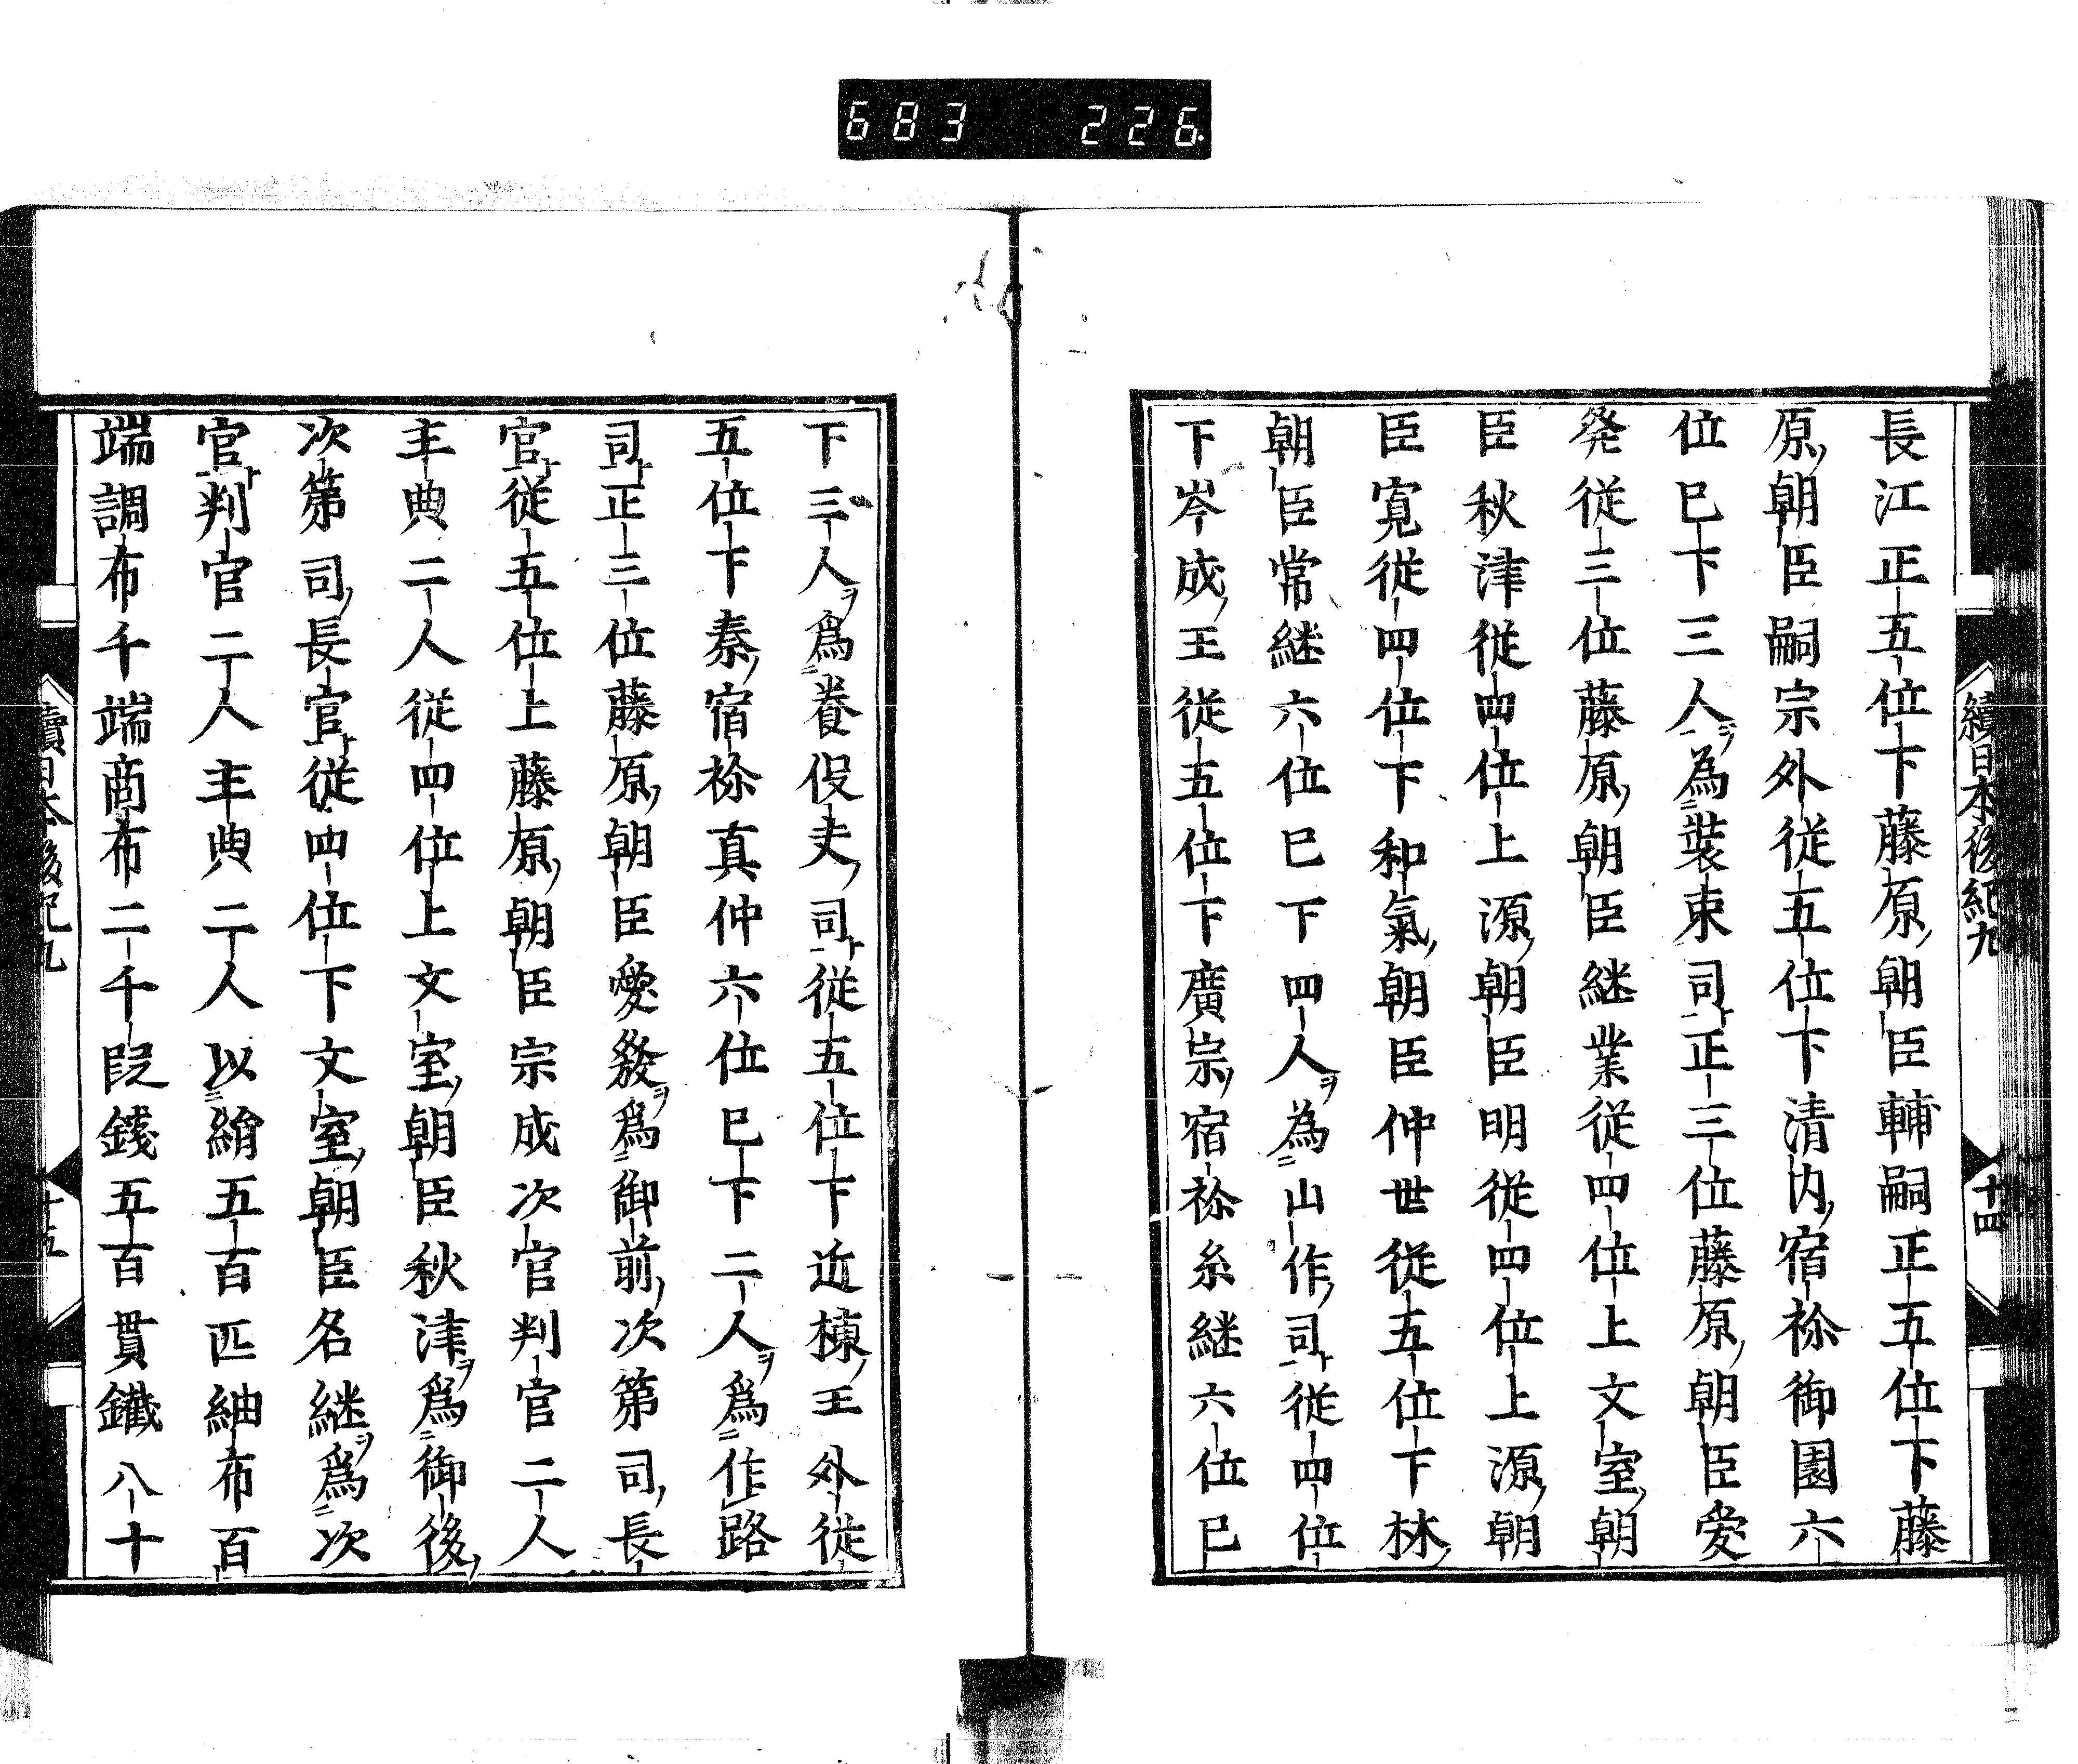 683 226.
續日本後紀九 十四
長江正五位下藤原朝臣輔嗣正五位下藤
原朝臣嗣宗外従五位下清内宿祢御園六
位已下三人ヲ為ニ裝束司ト正三位藤原朝臣愛
発従三位藤原朝臣継業従四位上文室朝
臣秋津従四位上源朝臣明従四位上源朝
臣寛従四位下和氣朝臣仲世従五位下林
朝臣常継六位已下四人ヲ為ニ山作司ト従四位
下岑成王従五位下廣宗宿祢糸継六位已
下三人ヲ爲ニ養役夫司ト従五位下近棟王外従
五位下秦宿祢真仲六位已下二人ヲ爲ニ作路
司ト正三位藤原朝臣愛發ヲ爲ニ御前次第司長
官ト従五位上藤原朝臣宗成次官判官二人
主典二人従四位上文室朝臣秋津ヲ爲ニ御後
次第司長官ト従四位下文室朝臣名継ヲ爲ニ次
官ト判官二人主典二人以ニ絹五百匹紬布百
端調布千端商布二千段錢五百貫鐵八十
續日本後紀九 十五